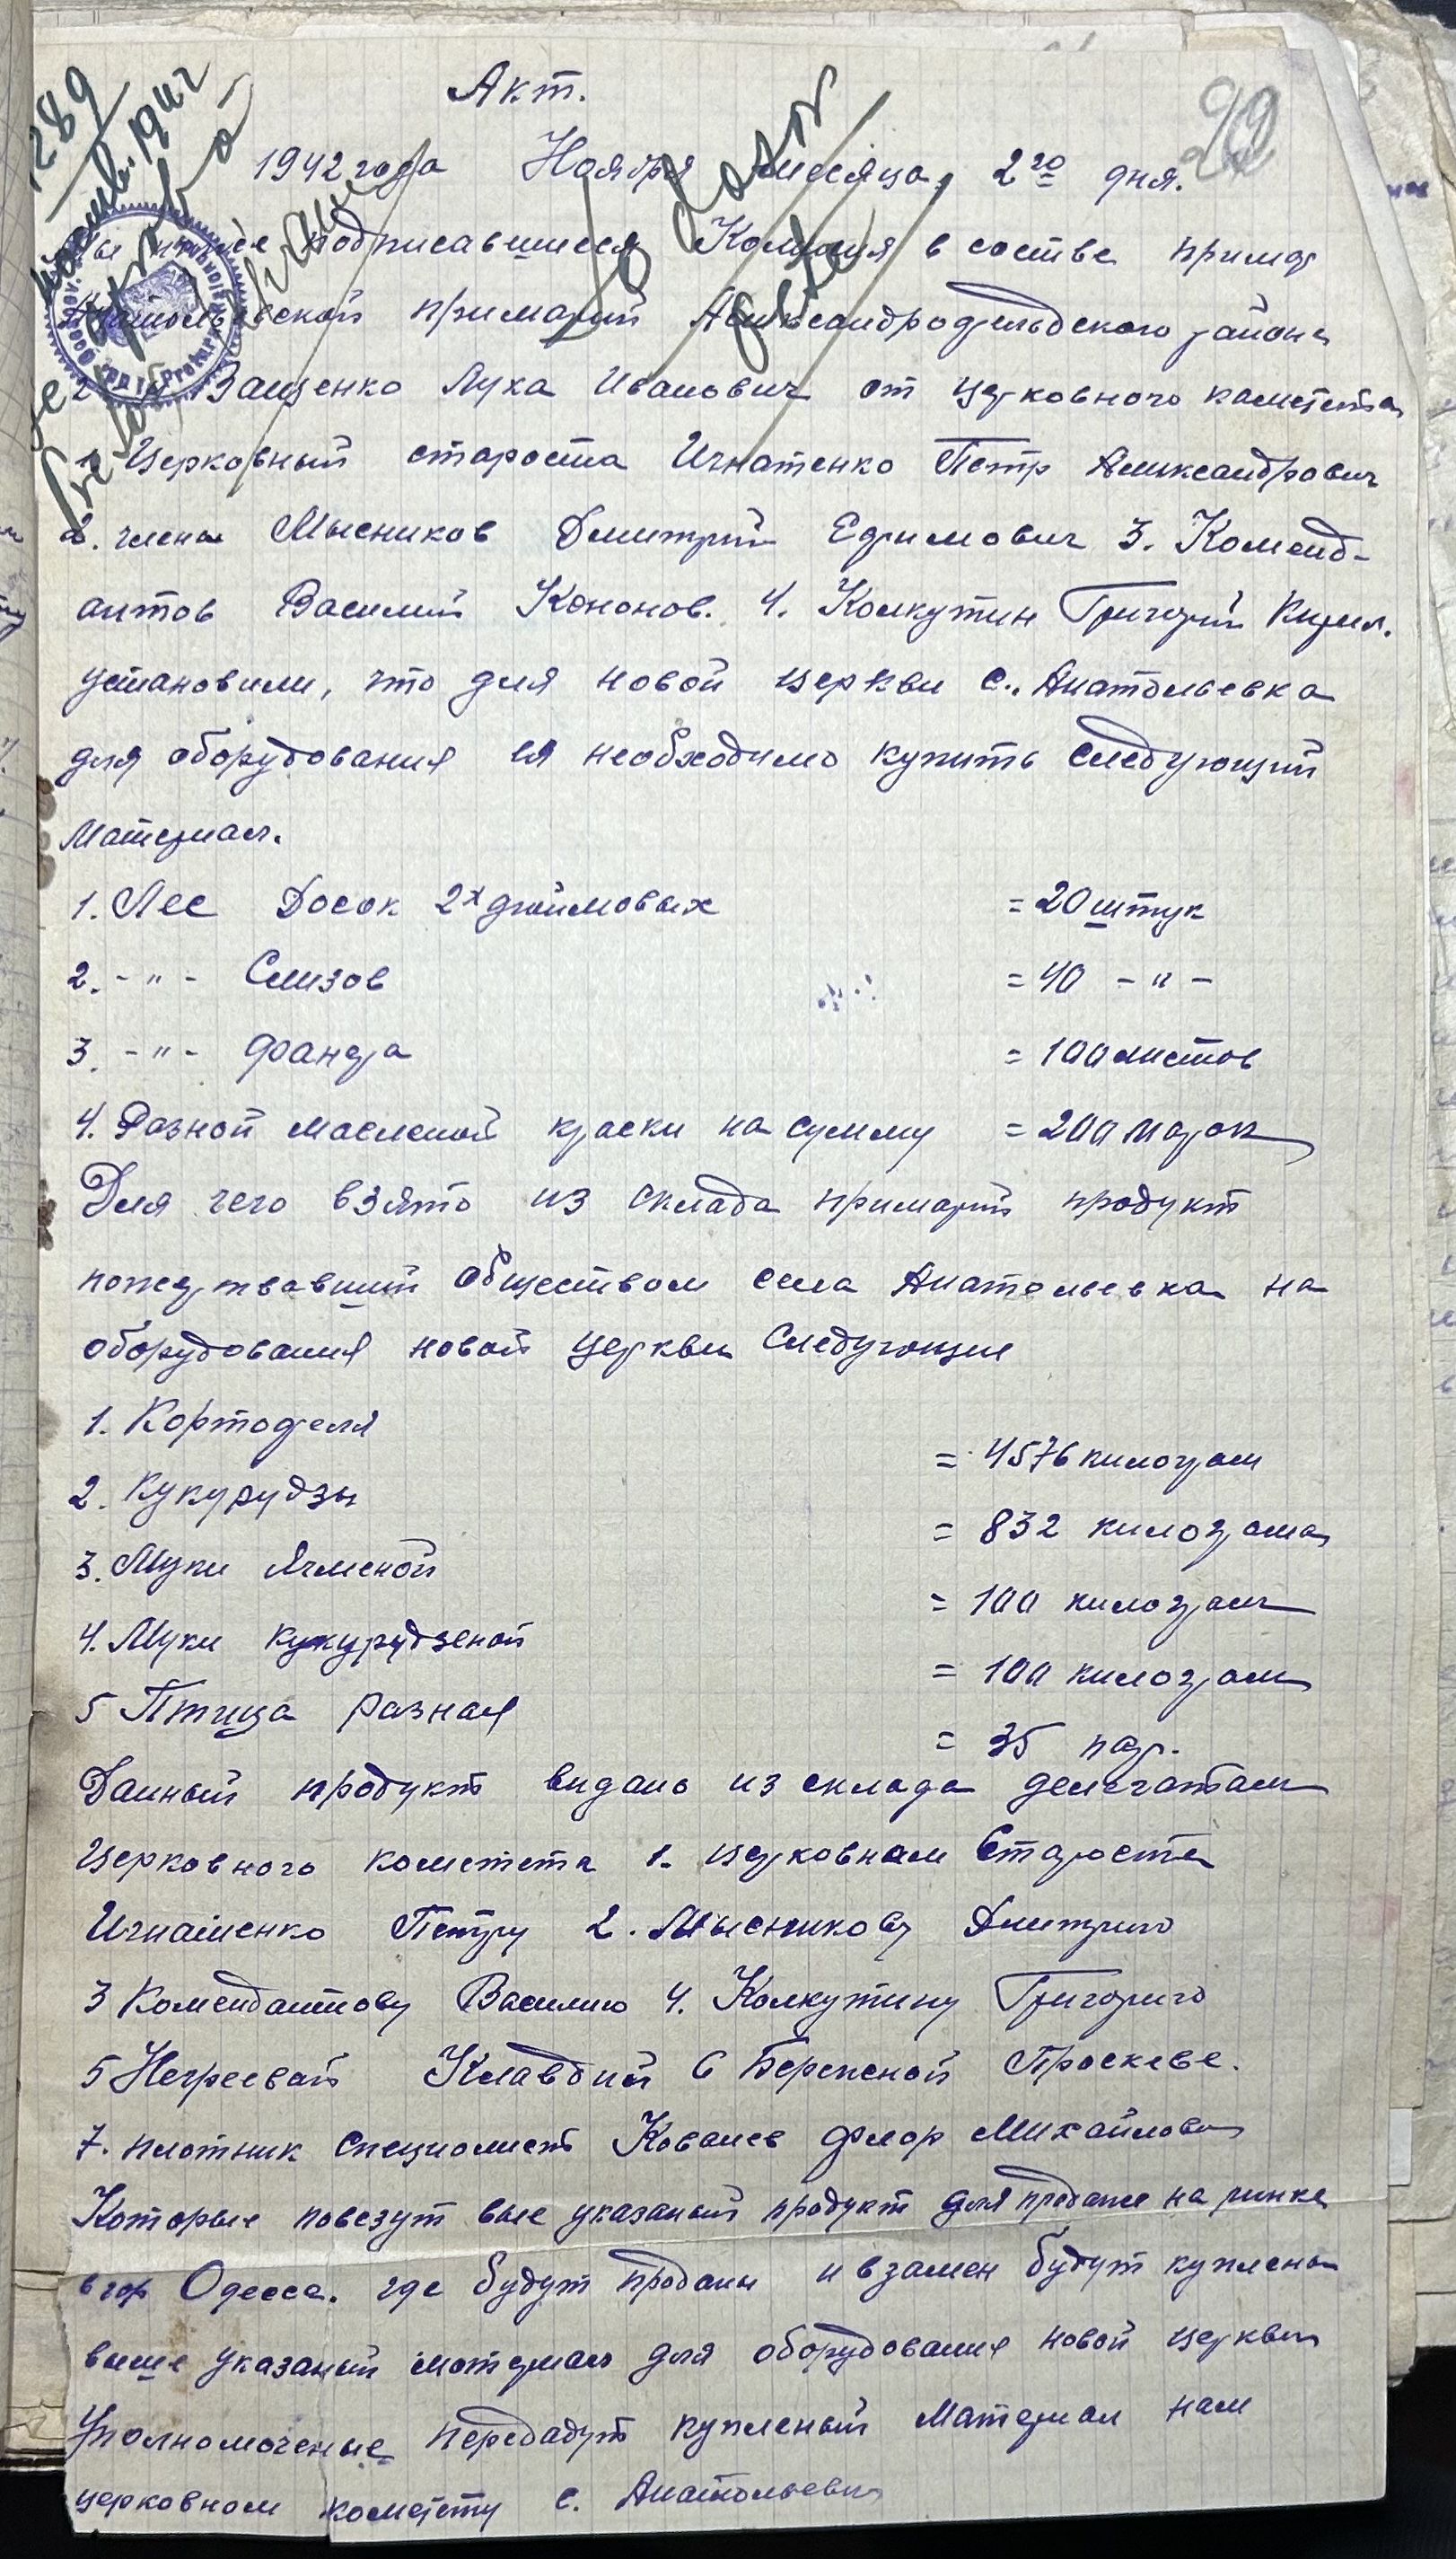 Акт.
29
1942 года Ноября месяца 2го дня.
подписавшиеся Комисия в составе примар
примарии Александродельдского района
Защенко Луха Иванович от церковного каметета
1. Церковный староста Игнатенко Петр Александрович
2. члены Мысников Дмитрий Ефимович 3. Коменд-
антов Василий Кононов. 4. Колкутин Григорий Кирил.
установили, что для новой церкви с. Анатольевка
для оборудования ея необходимо купить следующий
Материал.
1. Лес Досок 2х дюймовых = 20 штук
2. - " - Слизов = 40 - " -
3. - " - Фанера = 100 листов
4. Разной масленой краски на сумму = 200 марок
Для чего взято из склада примарии продукт
обществом села Анатольевка на
оборудования новой церкви Следующие
1. Кортофеля = 4576 килограм
2. Кукурудзы = 832 килограма
3. Муки Ячменой = 100 килограм
4. Муки кукурудзеной = 100 килограм
5 Птица разная = 35 пар.
Данный продукт видано из склада делегатам
Церковного кометета 1. церковнам Старосте
Игнатенко Петру 2. Мысникову Дмитрию
3 Комендантову Василию 4. Колкутину Григорию
5 Негреевай Клавдий 6 Бережной Проскеве.
7. плотник специолист Ковалев Флор Михайлович
Которые повезут выше указаный продукт для продаже на ринке
в гор Одесса. где будут проданы и взамен будут куплены
выше указаный материал для оборудование новой церкви
Уполномоченые передадут купленый Материал нам
церковном кометету с. Анатольевки